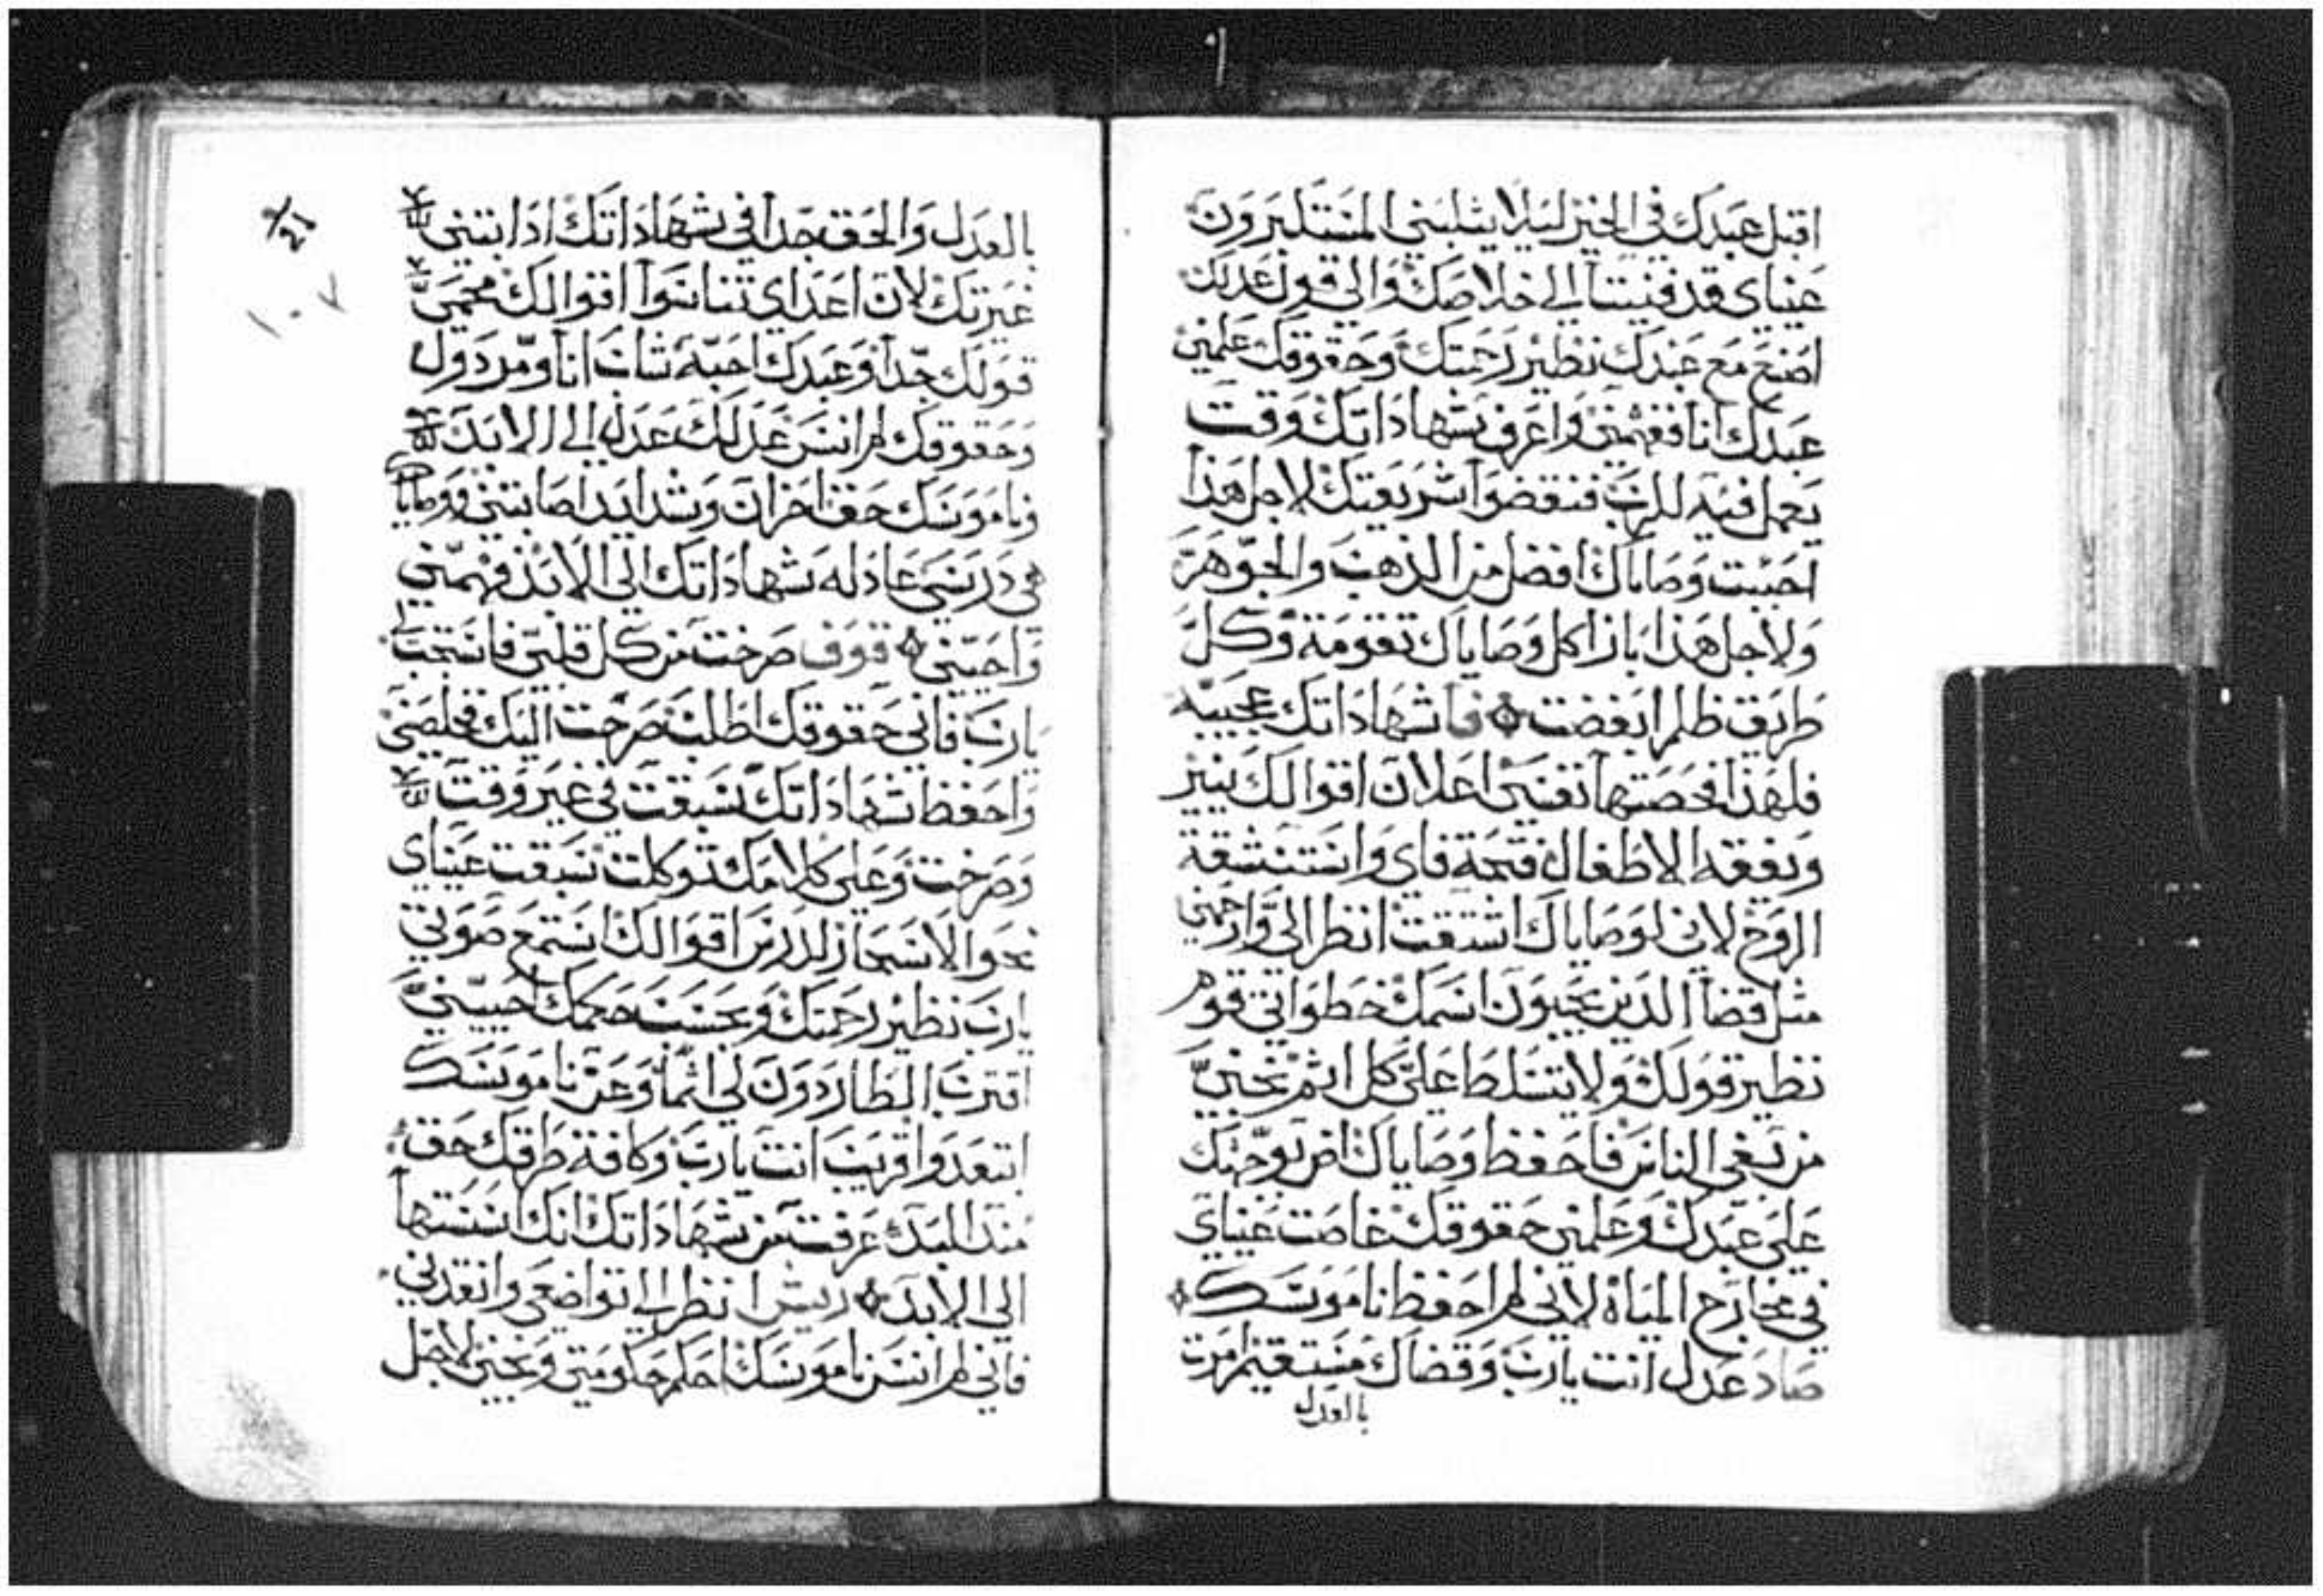 اقبل عبدك في الخير ليلا يثلبني المتكبرون
عيناي قد فنيتا الى خلاصك والى قول عدلك
اصنع مع عبدك نظير رحمتك وحقوقك علمني
عبدك انا ففهمني واعرف شهاداتك وقت
يعمل فيه للرب فنقضوا شريعتك لاجل هذا
احببت وصاياك افضل من الذهب والجوهر
ولاجل هذا بازا كل وصاياك تقومة وكل
طريق ظلم ابغضت فا شهاداتك عجيبه
فلهذا فحصتها نفسي اعلان اقوالك ينير
ويفقه الاطفال فتحة فاي واستنشقة
الروح لاني لوصاياك اشتقت انظر الي وارحمني
مثل قضا الذين يحبون اسمك خطواتي قوم
نظير قولك ولا يتسلط علي كل اثم نجيني
من بغي الناس فاحفظ وصاياك اض بوجهك
على عبدك وعلمني حقوقك غاصت عيناي
في مخارج المياة لاني لم احفظ ناموسك
صاد عدل انت يارب وقضاك مستقيم امرت
بالعدل
بالعدل والحق جدا في شهاداتك اذابتني
غيرتك لان اعداي تناسوا اقوالك محمي
قولك جدا وعبدك احبه شاب انا ومردول
وحقوقك لم انس عدلك عدل الى الابد
وناموسك حق احزان وشدايد اصابتني ووصاياك
هي درسي عادله شهاداتك الى الابد فهمني
واحيني قوف صرخت من كل قلبي فاستجب لي
يارب فاني حقوقك اطلب صرخت اليك فخلصني
واحفظ شهاداتك سبقت في غير وقت
وصرخت وعلى كلامك توكلت سبقت عيناي
نحو الاسحار لدرس اقوالك استمع صوتي
يارب نظير رحمتك وبحسب حكمك احييني
اقترب الطاردون لي اثما وعن ناموسك
ابتعدوا قريب انت يارب وكافة طرقك حق
منذ البدء عرفت من شهاداتك انك اسستها
الى الابد ريش انظر الى تواضعي وانقذني
فاني لم انس ناموسك احكم حكومتي ونجيني لاجل